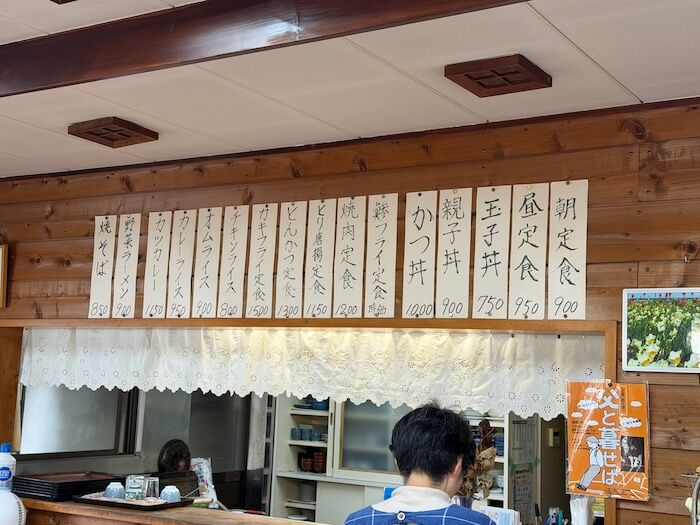 朝定食 900
昼定食 950
玉子丼 750
親子丼 900
かつ丼 1000
鯵フライ定食 時価
焼肉定食 1200
とり唐揚定食 1150
とんかつ定食 1300
カキフライ定食 1500
チキンライス 800
オムライス 900
カレーライス 950
カツカレー 1150
野菜ラーメン 900
焼そば 850
父と暮せば